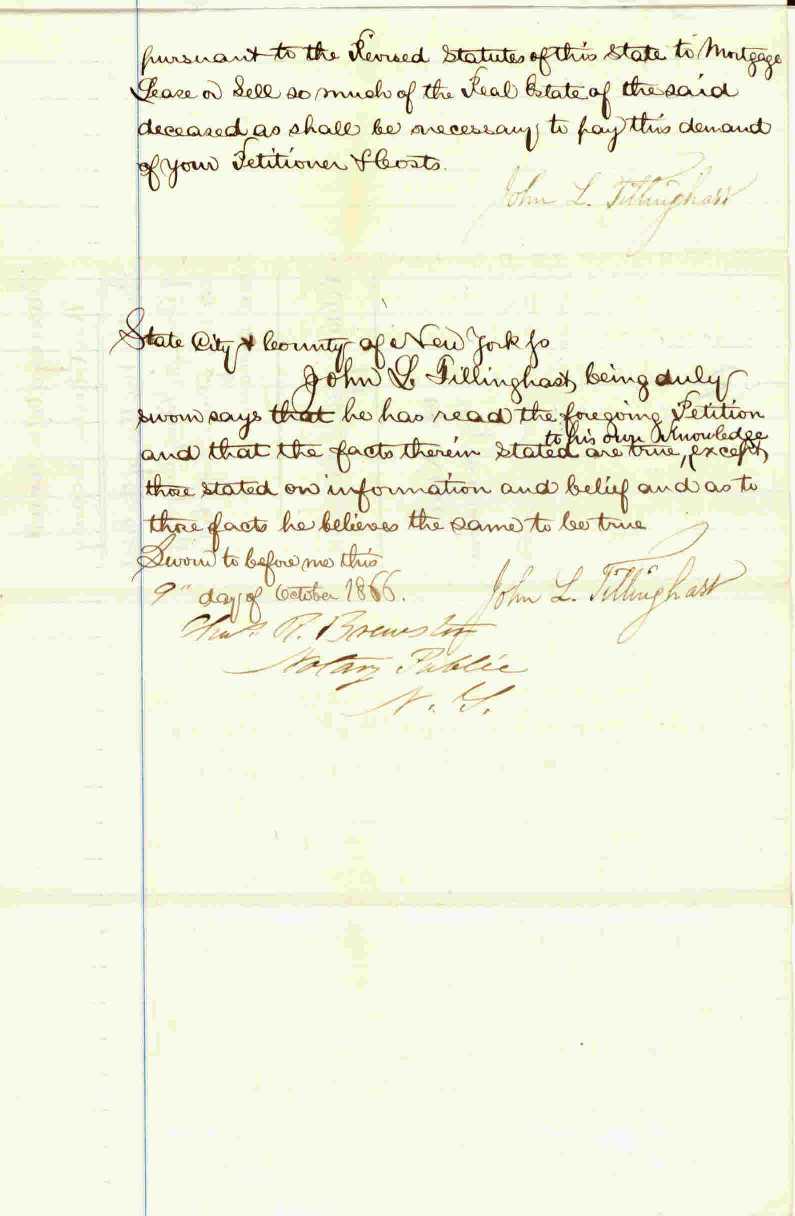 pursuant to the Revised Statutes of this State to Mortgage
Lease or Sell so much of the Real Estate of the said
deceased as shall be necessary to pay this demand
of your Petitioner & Costs.
John L. Tillinghast
State City & County of New York ss
John L Tillinghast being duly
sworn says that he has read the foregoing Petition
to his own Knowledge
and that the facts therein stated are true, except
those stated on information and belief and as to
those facts he believes the same to be true
Sworn to before me this
9" day of October 1866.
John L. Tillinghast
Chas R. Brewster
Notary Public
N. Y.